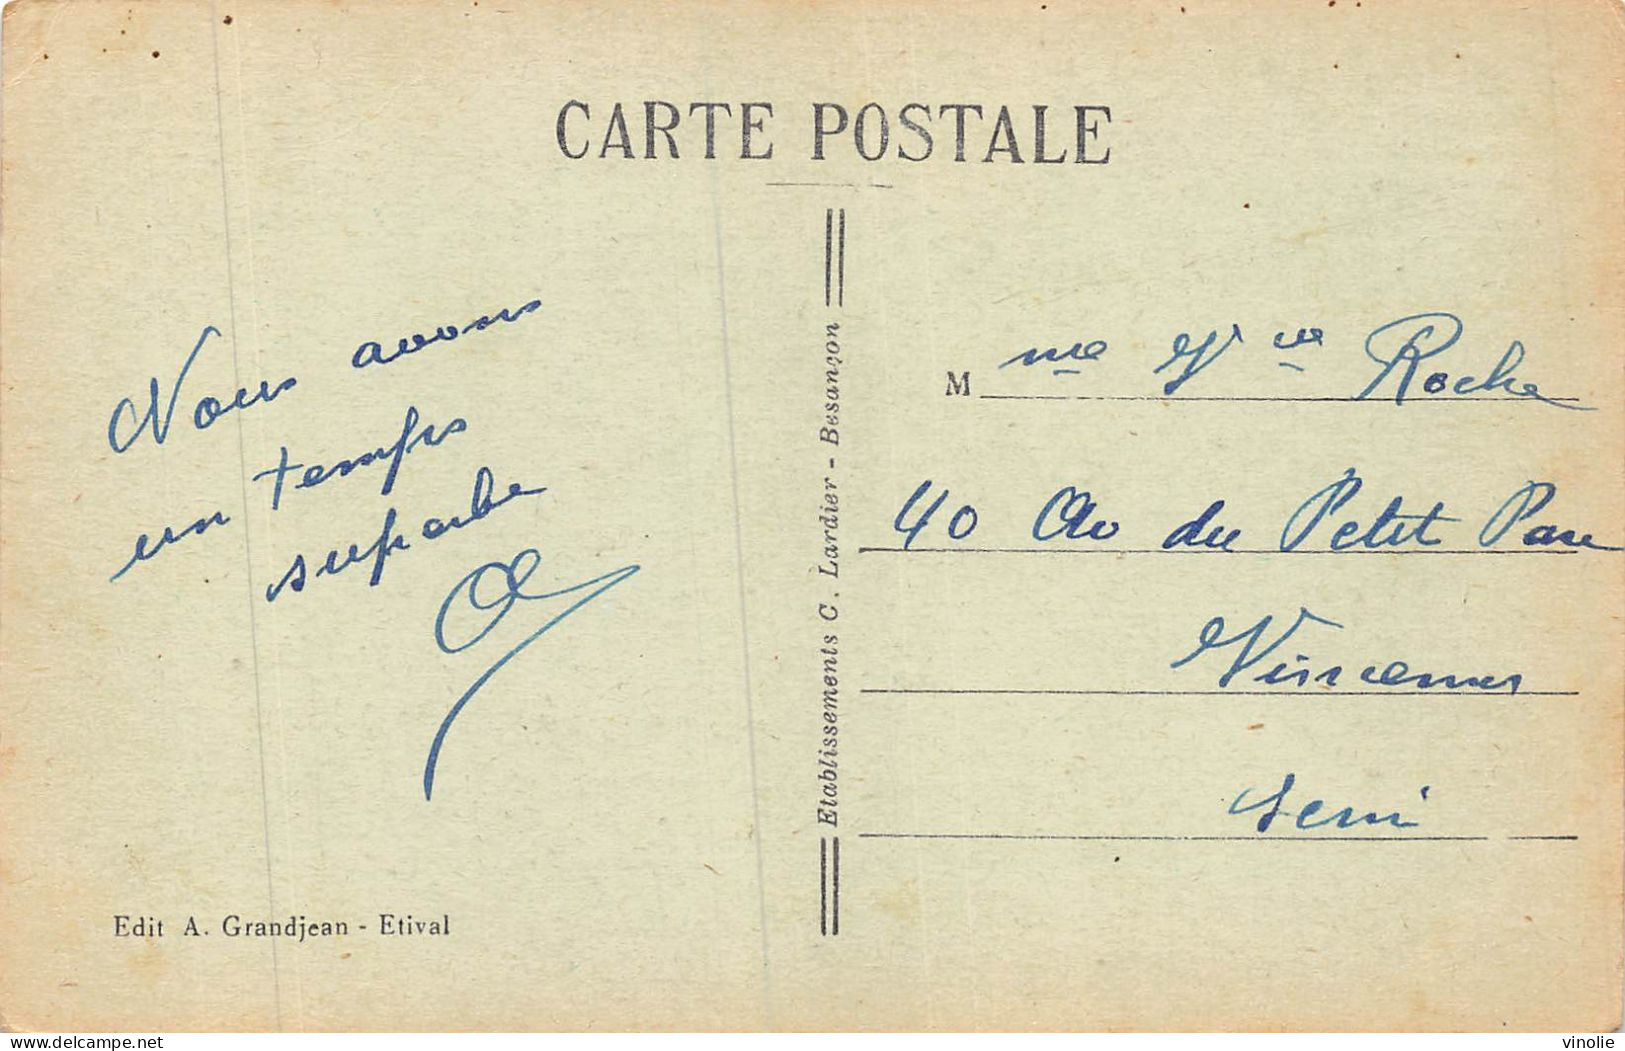 CARTE POSTALE
Nous avons
un temps
superbe
Etablissements C. Lardier - Besançon
M me Vve Roche
40 Av du Petit Parc
Vincennes
Seine
Edit A. Grandjean - Etival
delcampe.net
vinolie